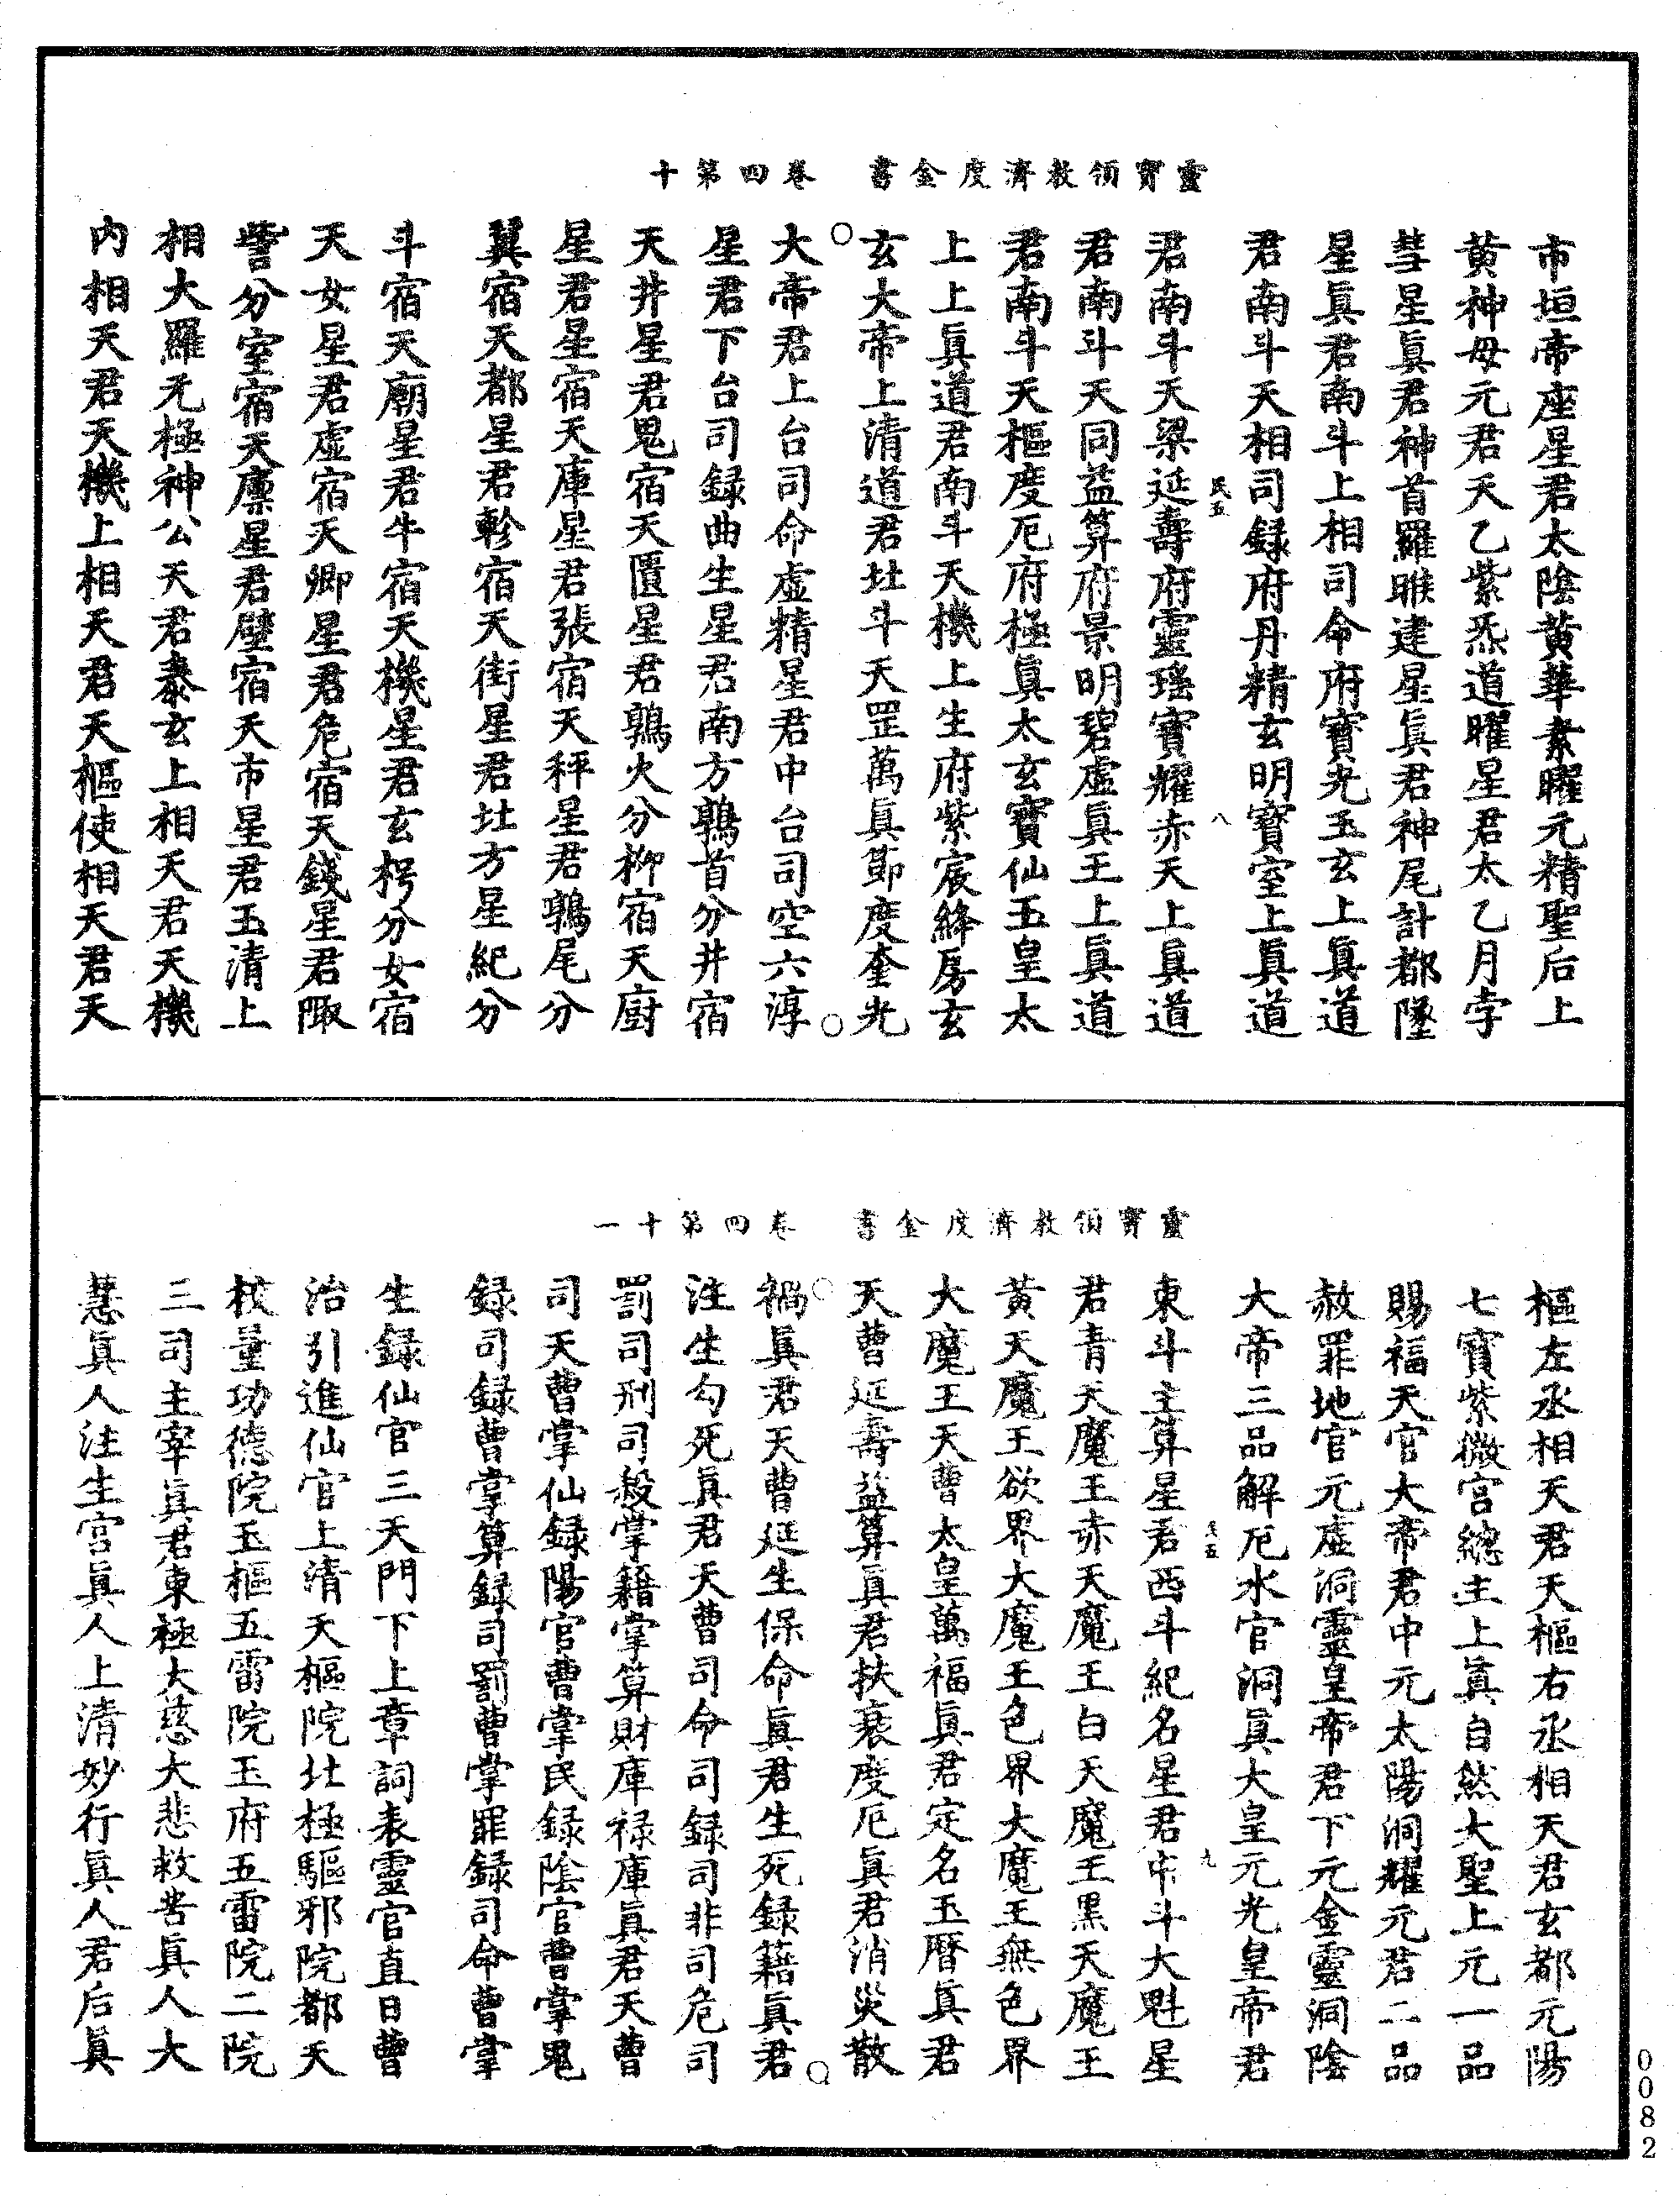 靈寶領教濟度金書　卷四第十
市垣帝座星君太陰黃華素曜元精聖后上
黃神母元君天乙紫炁道曜星君太乙月孛
彗星眞君神首羅睺建星眞君神尾計都墜
星眞君南斗上相司命府寶光玉玄上眞道
君南斗天相司録府丹精玄明寶室上眞道
民五　八
君南斗天梁延壽府靈瑤寶耀赤天上眞道
君南斗天同益算府景明碧虛眞王上眞道
君南斗天樞度厄府極眞太玄寶仙玉皇太
上上眞道君南斗天機上生府紫宸絳房玄
玄大帝上清道君北斗天罡萬眞節度奎光
大帝君上台司命虛精星君中台司空六淳
星君下台司録曲生星君南方鶉首分井宿
天井星君鬼宿天匱星君鶉火分柳宿天廚
星君星宿天庫星君張宿天秤星君鶉尾分
翼宿天都星君軫宿天街星君北方星紀分
斗宿天廟星君牛宿天機星君玄枵分女宿
天女星君虛宿天卿星君危宿天錢星君陬
訾分室宿天廪星君壁宿天市星君玉清上
相大羅无極神公天君泰玄上相天君天機
内相天君天機上相天君天樞使相天君天
靈寶領教濟度金書　卷四第十一
樞左丞相天君天樞右丞相天君玄都元陽
七寶紫微宮總主上眞自然大聖上元一品
賜福天官大帝君中元太陽洞耀元君二品
赦罪地官元虛洞靈皇帝君下元金靈洞陰
大帝三品解厄水官洞眞大皇元光皇帝君
民五　九
東斗主算星君西斗紀名星君中斗大魁星
君青天魔王赤天魔王白天魔王黑天魔王
黃天魔王欲界大魔王色界大魔王無色界
大魔王天曹太皇萬福眞君定名玉曆眞君
天曹延壽益算眞君扶衰度厄眞君消災散
禍眞君天曹延生保命眞君生死録籍眞君
注生勾死眞君天曹司命司録司非司危司
罰司刑司殺掌籍掌算財庫祿庫眞君天曹
司天曹掌仙録陽官曹掌民録陰官曹掌鬼
録司録曹掌算録司罰曹掌罪録司命曹掌
生録仙官三天門下上章詞表靈官直日曹
治引進仙官上清天樞院北極驅邪院都天
校量功德院玉樞五雷院玉府五雷院二院
三司主宰眞君東極大慈大悲救苦眞人大
慧眞人注生宮眞人上清妙行眞人君后眞
0082